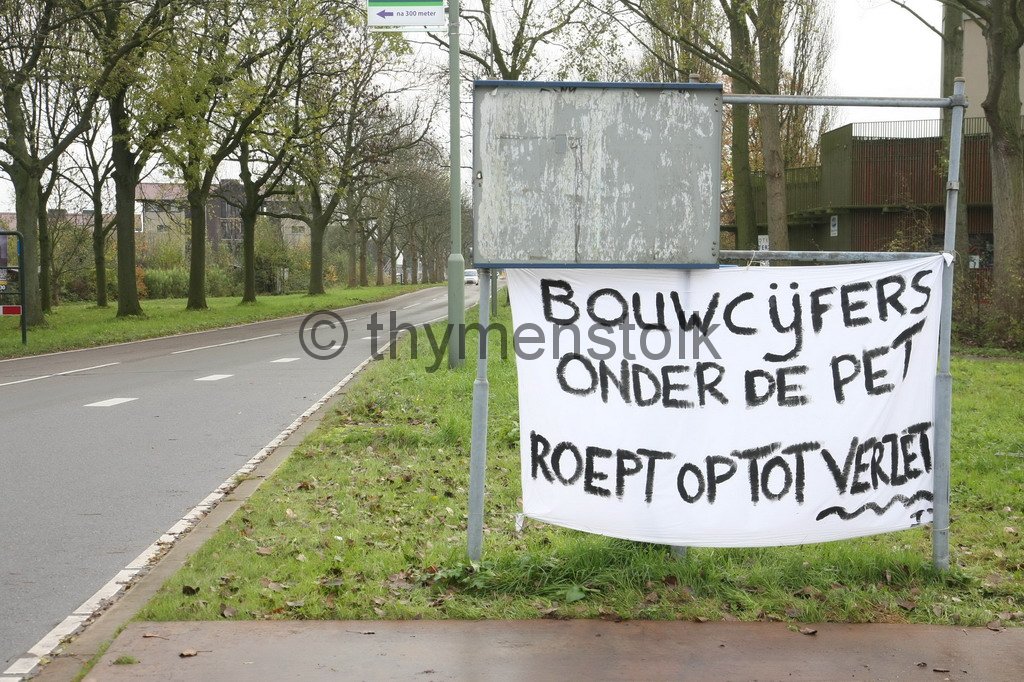 na 300 meter
BOUWCIJFERS
ONDER DE PET
© thymenstolk
ROEPT OP TOT VERZET